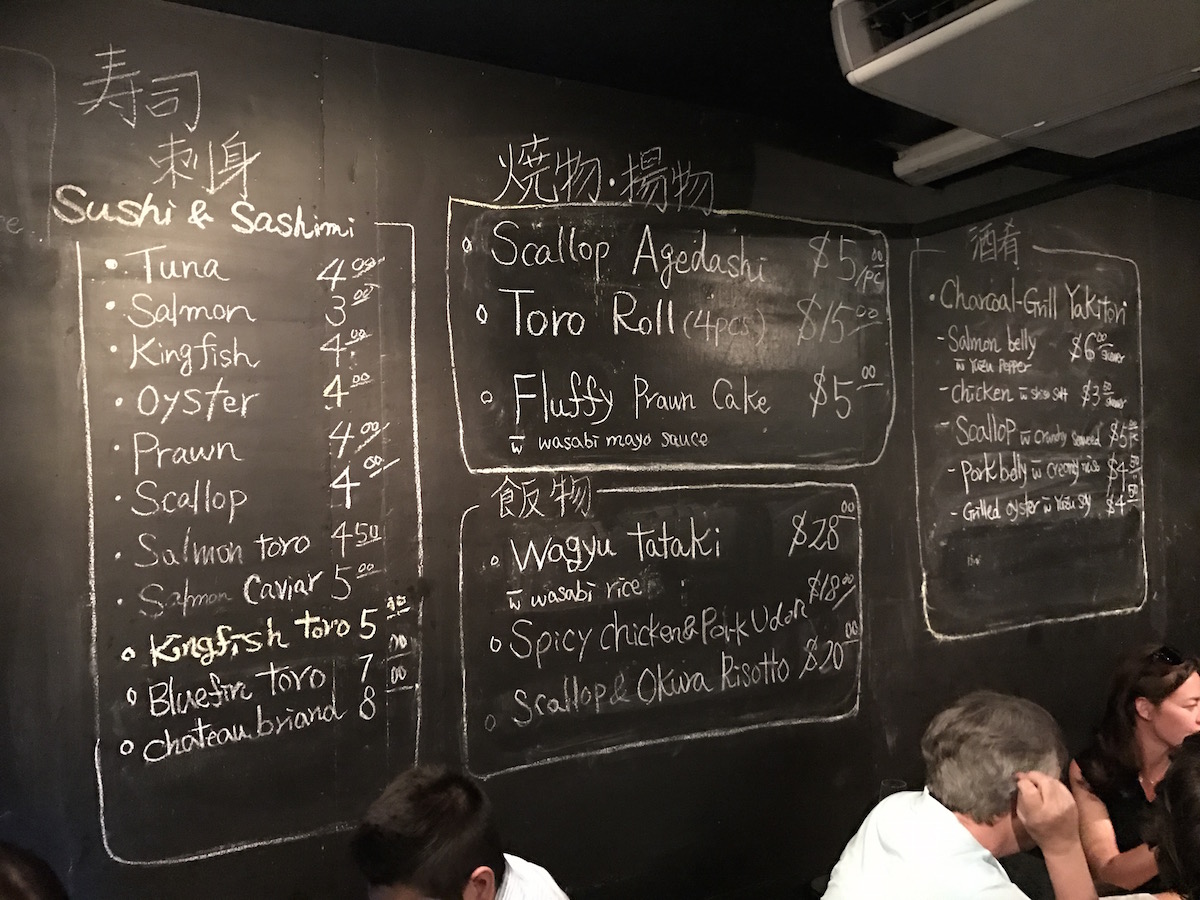 寿司
刺身
Sushi & Sashimi
• Tuna 4.00
• Salmon 3.00
• Kingfish 4.00
• Oyster 4.00
• Prawn 4.00
• Scallop 4.00
• Salmon toro 4.50
• Salmon Caviar 5.00
○ Kingfish toro 5
○ Bluefin toro 7.00
○ chateaubriand 8.00
焼物・揚物
○ Scallop Agedashi $5.00/pc
○ Toro Roll (4pcs) $15.00
○ Fluffy Prawn Cake $5.00
w wasabi mayo sauce
飯物
○ Wagyu tataki $28.00
w wasabi rice
○ Spicy chicken & Pork Udon $18.00
○ Scallop & Okura Risotto $20.00
酒肴
• Charcoal-Grill Yakitori
- Salmon belly $6.00
w Yuzu Pepper
- chicken w shiso salt $3
- Scallop w crunchy seaweed $5
- Pork belly w creamy miso $4
- Grilled oyster w Yuzu soy $4